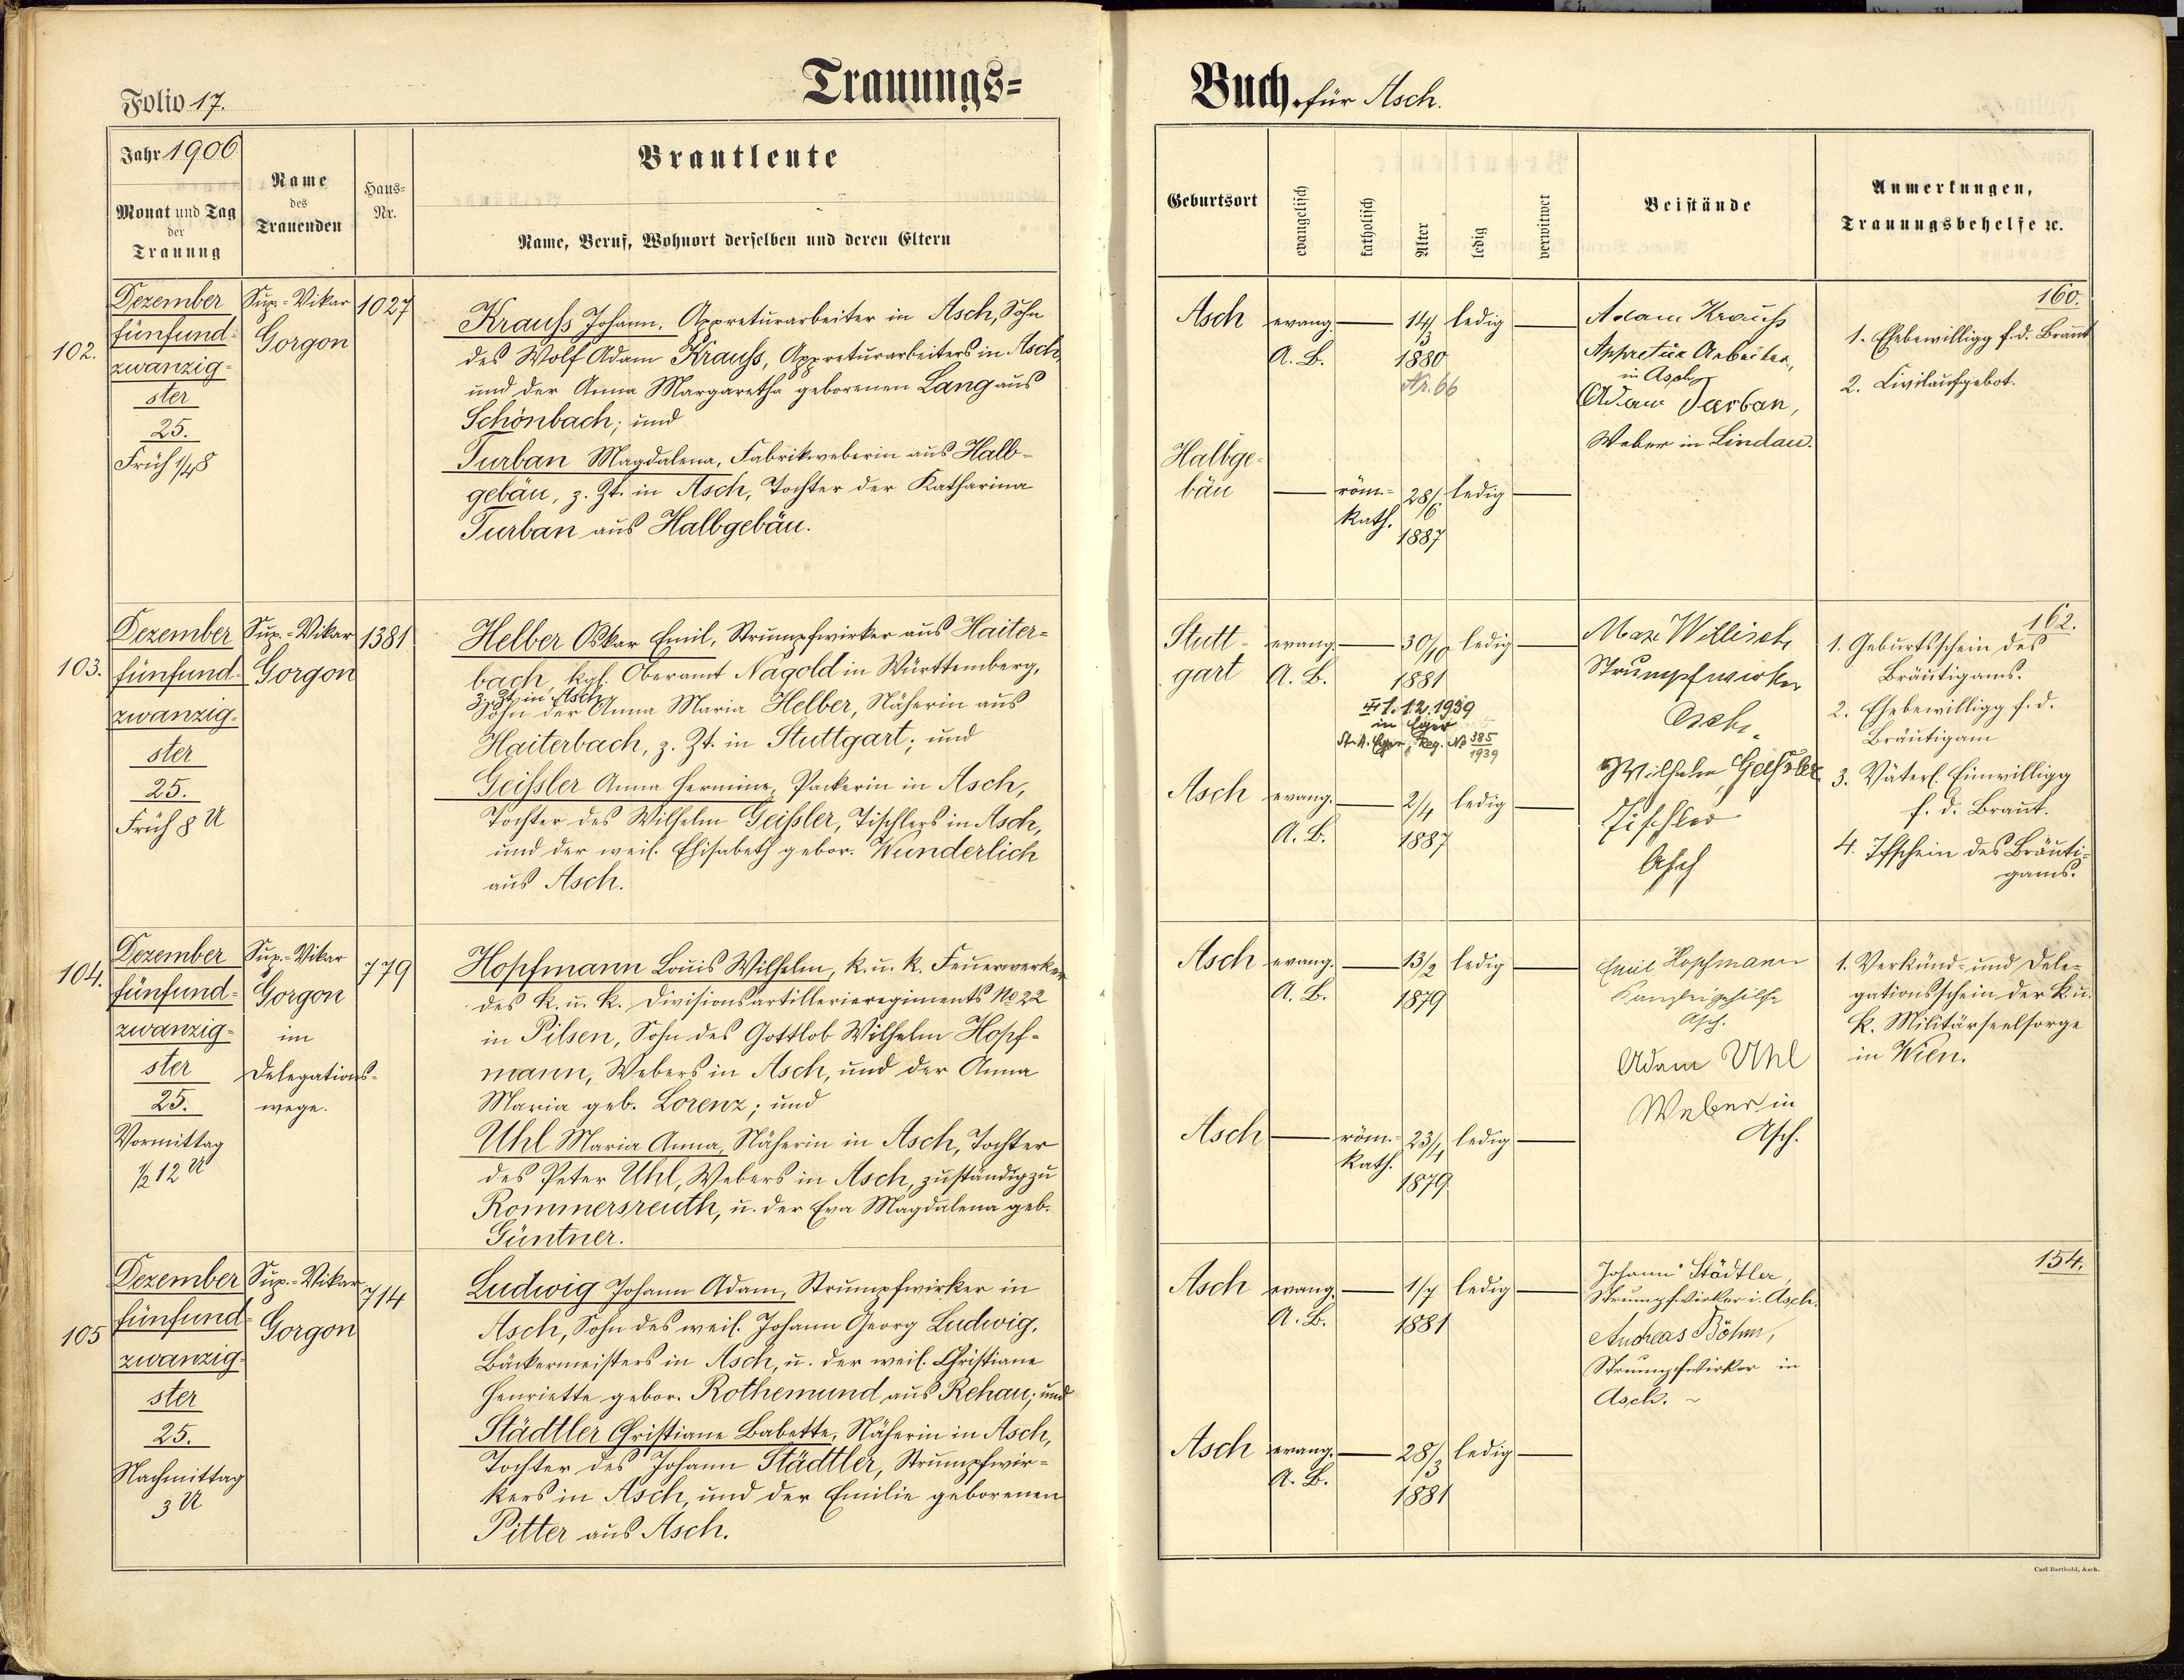 Trauungs=
Buch für Asch.
Folio 17.
Jahr 1906
Monat und Tag
der
Trauung
Name
des
Trauenden
Haus=
Nr.
Brautleute
Name, Beruf, Wohnort derselben und deren Eltern
Geburtsort
evangelisch
katholisch
Alter
ledig
verwitwet
Beistände
Anmerkungen,
Trauungsbehelfe ꝛc.
102.
Dezember
fünfund-
zwanzig-
ster
25.
Früh 1/4 8
Sup.-Vikar
Gorgon
1027
Krauß Johann, Appreturarbeiter in Asch, Sohn
des Wolf Adam Krauß, Appreturarbeiters in Asch
und der Anna Margaretha geborenen Lang aus
Schönbach; und
Turban Magdalena, Fabrikweberin aus Halb-
gebäu, z. Zt. in Asch, Tochter der Katharina
Turban aus Halbgebäu.
Asch
evang.
A. B.
14/3
1880
Nr. 66
ledig
Halbge-
bäu
röm.-
kath.
28/6
1887
ledig
Adam Krauß
Appretur Arbeiter,
in Asch,
Adam Turban,
Weber in Lindau.
160.
1. Ehebewilligg f. d. Braut
2. Civilaufgebot.
103.
Dezember
fünfund-
zwanzig-
ster
25.
Früh 8 U
Sup.-Vikar
Gorgon
1381
Helber Oskar Emil, Strumpfwirker aus Haiter-
bach, kgl. Oberamt Nagold in Württemberg,
z. Zt. in Asch,
Sohn der Anna Maria Helber, Näherin aus
Haiterbach, z. Zt. in Stuttgart; und
Geißler Anna Hermine, Packerin in Asch,
Tochter des Wilhelm Geißler, Tischlers in Asch,
und der weil. Elisabeth gebor. Wunderlich
aus Asch.
Stutt-
gart
evang.
A. B.
30/10
1881
ledig
1.12.1939
in Eger
St. A. Eger, Reg. No 385/1939
Asch
evang.
A. B.
2/4
1887
ledig
Max Willisch
Strumpfwirker
Asch.
Wilhelm Geißler
Tischler
Asch
162.
1. Geburtsschein des
Bräutigams.
2. Ehebewilligg f. d.
Bräutigam
3. Väterl. Einwilligg
f. d. Braut.
4. Tfschein des Bräuti-
gams.
104.
Dezember
fünfund-
zwanzig-
ster
25.
Vormittag
1/2 12 U
Sup.-Vikar
Gorgon
im
Delegations-
wege.
779
Hopfmann Louis Wilhelm, k. u. k. Feuerwerker
des k. u. k. Divisionsartillerieregiments No 22
in Pilsen, Sohn des Gottlob Wilhelm Hopf-
mann, Webers in Asch, und der Anna
Maria geb. Lorenz; und
Uhl Maria Anna, Näherin in Asch, Tochter
des Peter Uhl, Webers in Asch, zuständig zu
Rommersreuth, u. der Eva Magdalena geb.
Güntner.
Asch
evang.
A. B.
13/2
1879
ledig
Asch
röm.-
kath.
23/4
1879
ledig
Emil Hopfmann
Kanzleigehilfe
Asch.
Adam Uhl
Weber in
Asch.
1. Verkünd- und Dele-
gationsschein der k. u.
k. Militärseelsorge
in Wien.
105
Dezember
fünfund-
zwanzig-
ster
25.
Nachmittag
3 U
Sup.-Vikar
Gorgon
714
Ludwig Johann Adam, Strumpfwirker in
Asch, Sohn des weil. Johann Georg Ludwig,
Bäckermeisters in Asch, u. der weil. Christiane
Henriette gebor. Rothemund aus Rehau; und
Städtler Christiane Babette, Näherin in Asch,
Tochter des Johann Städtler, Strumpfwir-
kers in Asch, und der Emilie geborenen
Pitter aus Asch.
Asch
evang.
A. B.
1/7
1881
ledig
Asch
evang.
A. B.
28/3
1881
ledig
Johann Städtler,
Strumpfwirker i. Asch.
Andreas Böhm,
Strumpfwirker in
Asch. ~
154.
Carl Berthold, Asch.